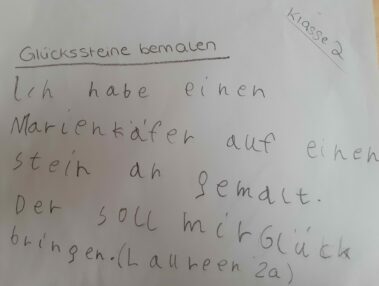 Klasse 2
Glückssteine bemalen
Ich habe einen
Marienkäfer auf einen
stein an gemalt.
Der soll mir Glück
bringen.(Laureen 2a)